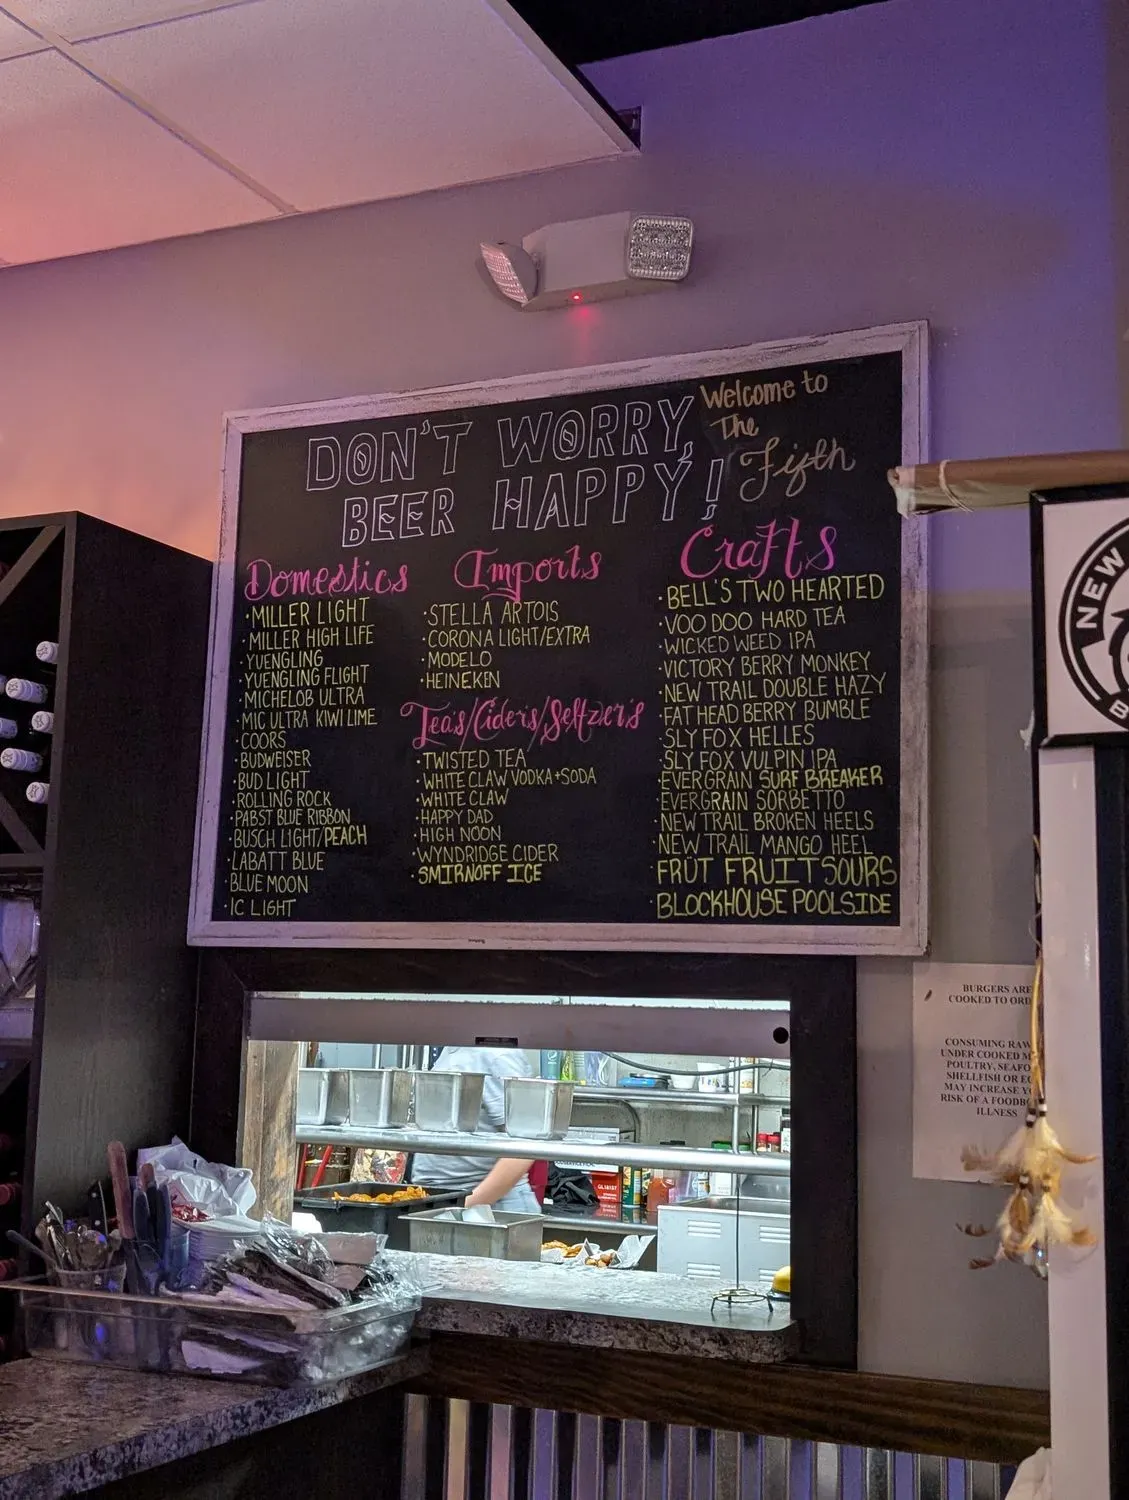 Welcome to
The
Fifth
DON'T WORRY,
BEER HAPPY!
Domestics
·MILLER LIGHT
·MILLER HIGH LIFE
·YUENGLING
·YUENGLING FLIGHT
·MICHELOB ULTRA
·MIC ULTRA KIWI LIME
·COORS
·BUDWEISER
·BUD LIGHT
·ROLLING ROCK
·PABST BLUE RIBBON
·BUSCH LIGHT/PEACH
·LABATT BLUE
·BLUE MOON
·IC LIGHT
Imports
·STELLA ARTOIS
·CORONA LIGHT/EXTRA
·MODELO
·HEINEKEN
Teas/Ciders/Seltzers
·TWISTED TEA
·WHITE CLAW VODKA+SODA
·WHITE CLAW
·HAPPY DAD
·HIGH NOON
·WYNDRIDGE CIDER
·SMIRNOFF ICE
Crafts
·BELL'S TWO HEARTED
·VOO DOO HARD TEA
·WICKED WEED IPA
·VICTORY BERRY MONKEY
·NEW TRAIL DOUBLE HAZY
·FAT HEAD BERRY BUMBLE
·SLY FOX HELLES
·SLY FOX VULPIN IPA
·EVERGRAIN SURF BREAKER
·EVERGRAIN SORBETTO
·NEW TRAIL BROKEN HEELS
·NEW TRAIL MANGO HEEL
·FRÜT FRUIT SOURS
·BLOCKHOUSE POOLSIDE
NEW
BURGERS ARE
COOKED TO
CONSUMING RAW
UNDER COOKED
POULTRY,
SHELLFISH OR
MAY INCREASE
RISK OF A
ILLNESS